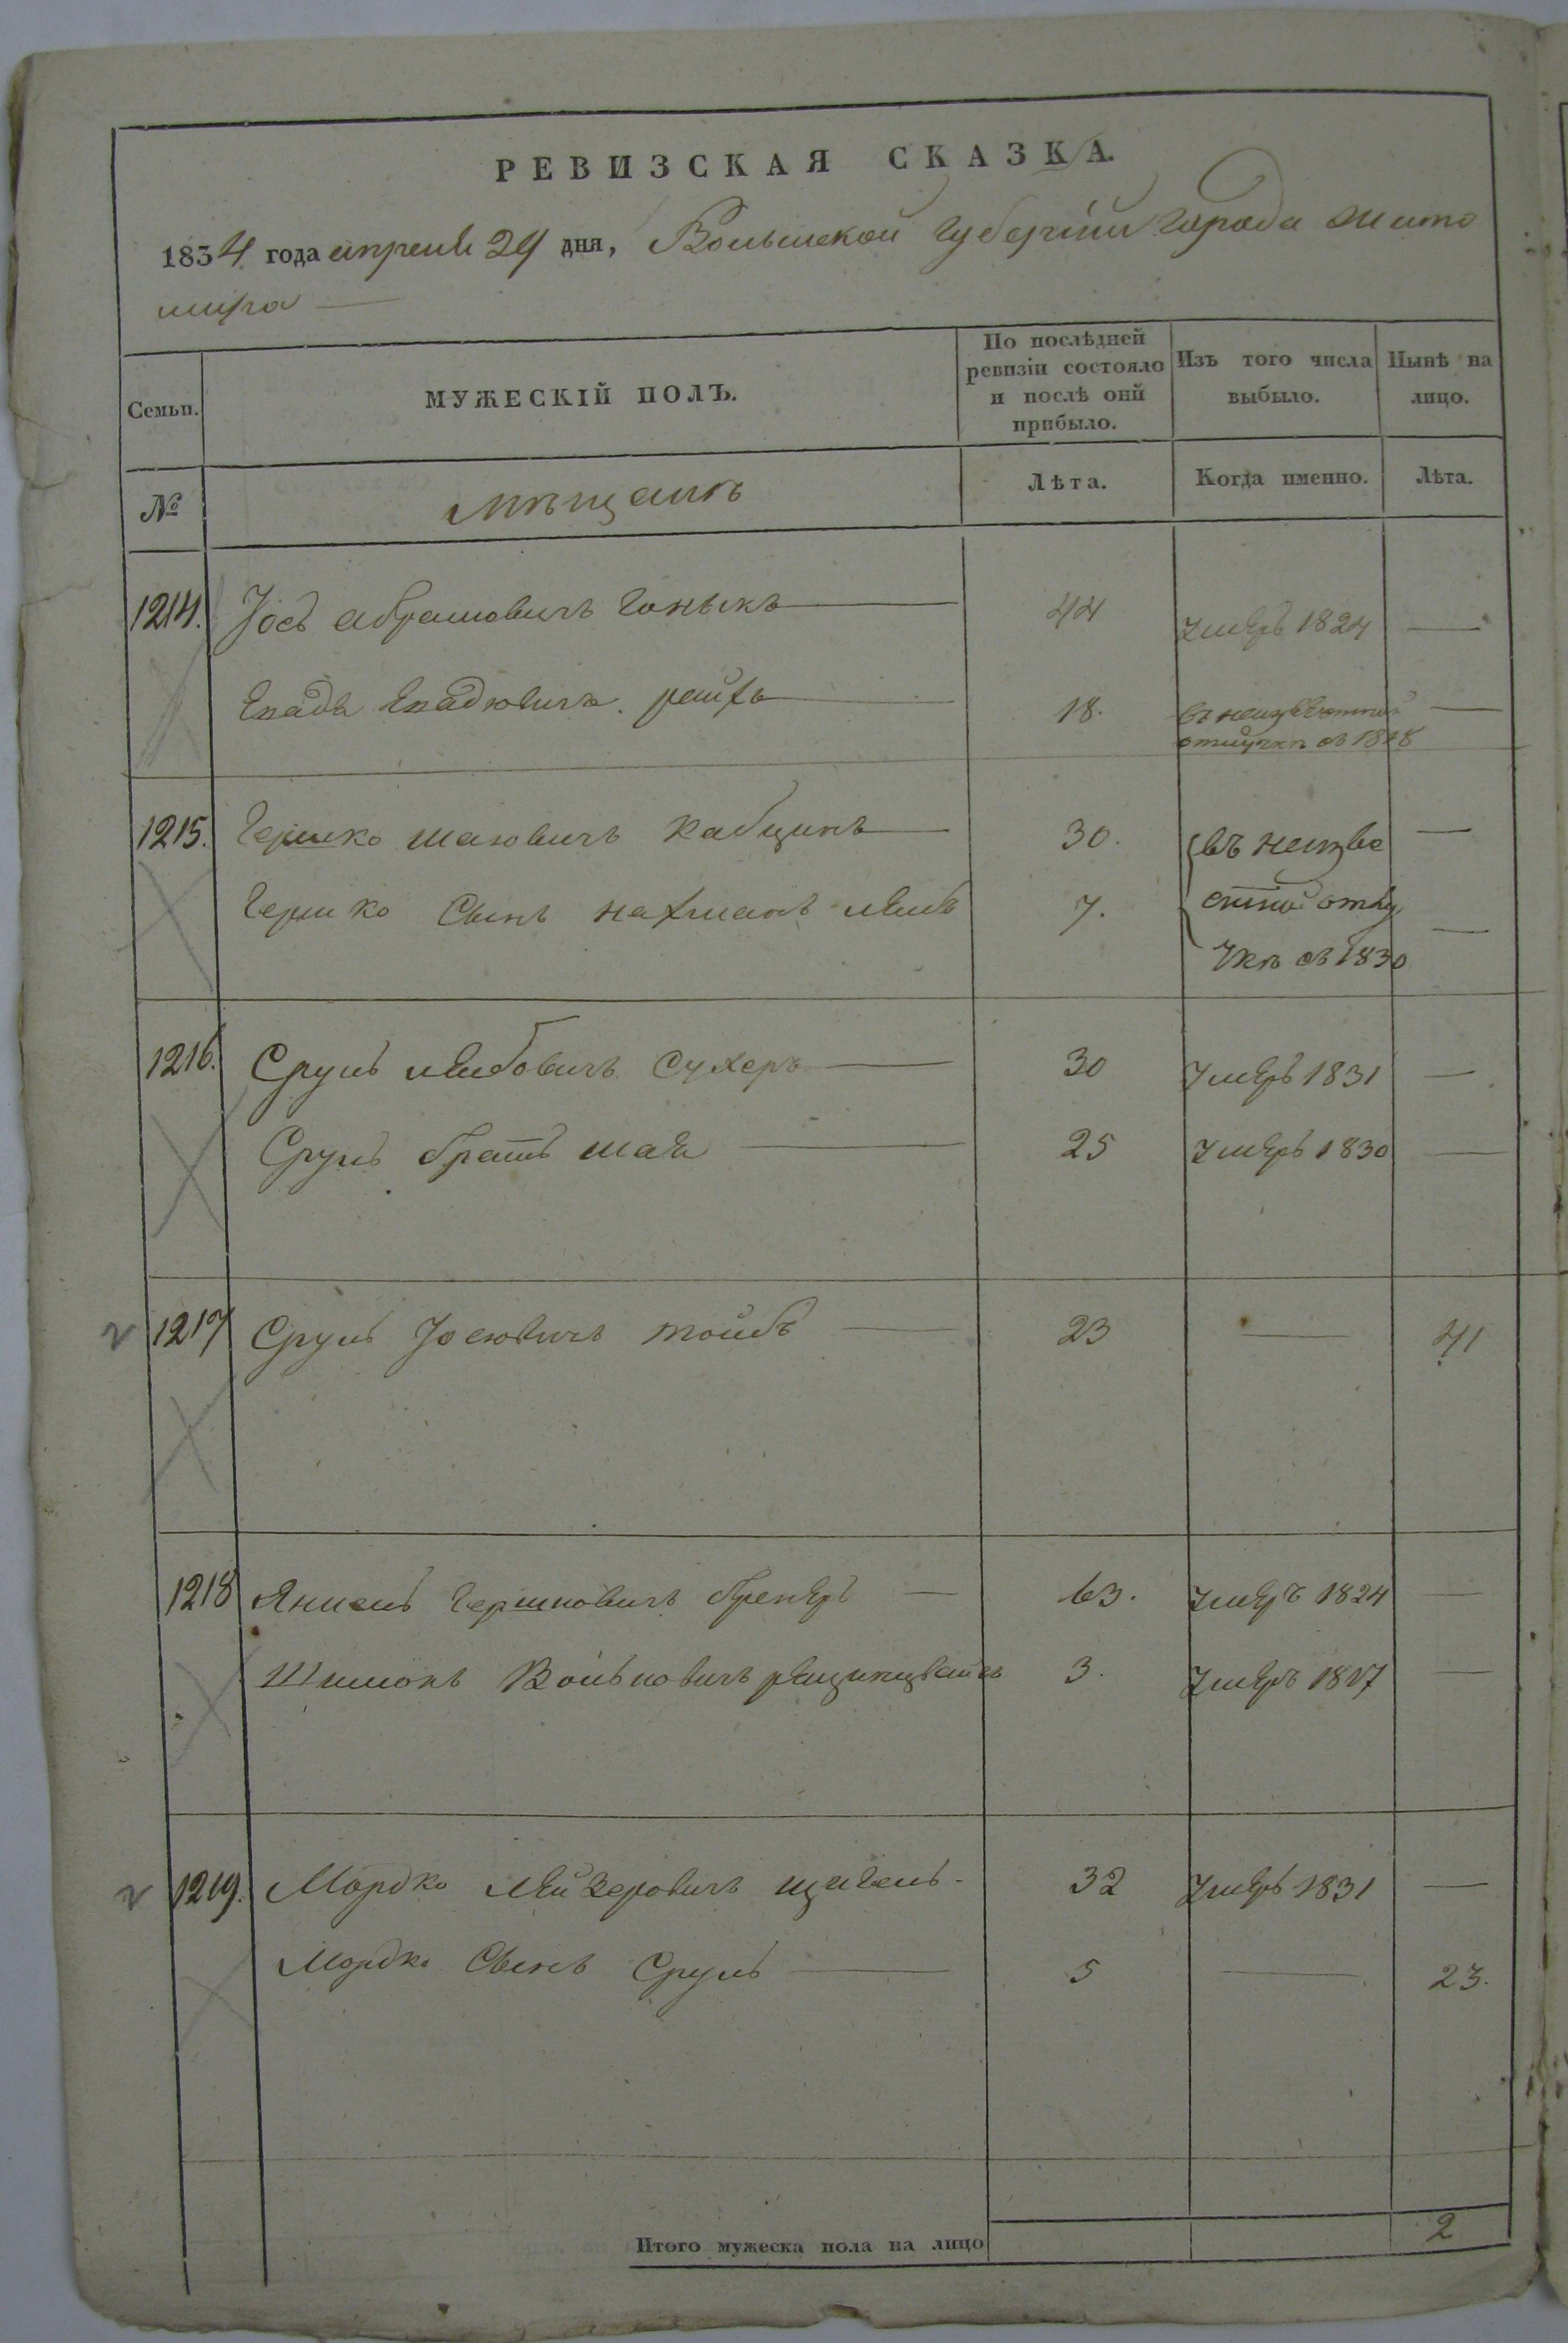 РЕВИЗСКАЯ СКАЗКА.
1834 года апреля 29 дня, Волынской губернии города Жито
мира
Семьи.
МУЖЕСКІЙ ПОЛЪ.
По послѣдней ревизіи состояло и послѣ оній прибыло.
Изъ того числа выбыло.
Нынѣ на лицо.
№
Мѣщанъ
Лѣта.
Когда именно.
Лѣта.
1214. Іось Абрамовичъ 44 умеръ 1824 —
18. въ неизвестной —
отлучкѣ съ 1828
1215. Гершко Шаювичъ Кабцинъ 30. въ неизве —
Гершко сынъ Нахманъ Лейб 7. стной отлу —
чкѣ съ 1830
1216. Сруль Лейбовичъ Сухеръ 30 умеръ 1831 —
Сруль братъ Шая 25 умеръ 1830 —
1217 Сруль Іосювичъ Тойбъ 23 — 41
1218 Янкель Гершковичъ 63. умеръ 1824 —
Шимонъ Вольковичъ 3. умеръ 1817 —
1219. Мордко Лейзеровичъ Цигель 32 умеръ 1831 —
Мордко сынъ Сруль 5 — 23.
Итого мужеска пола на лицо 2